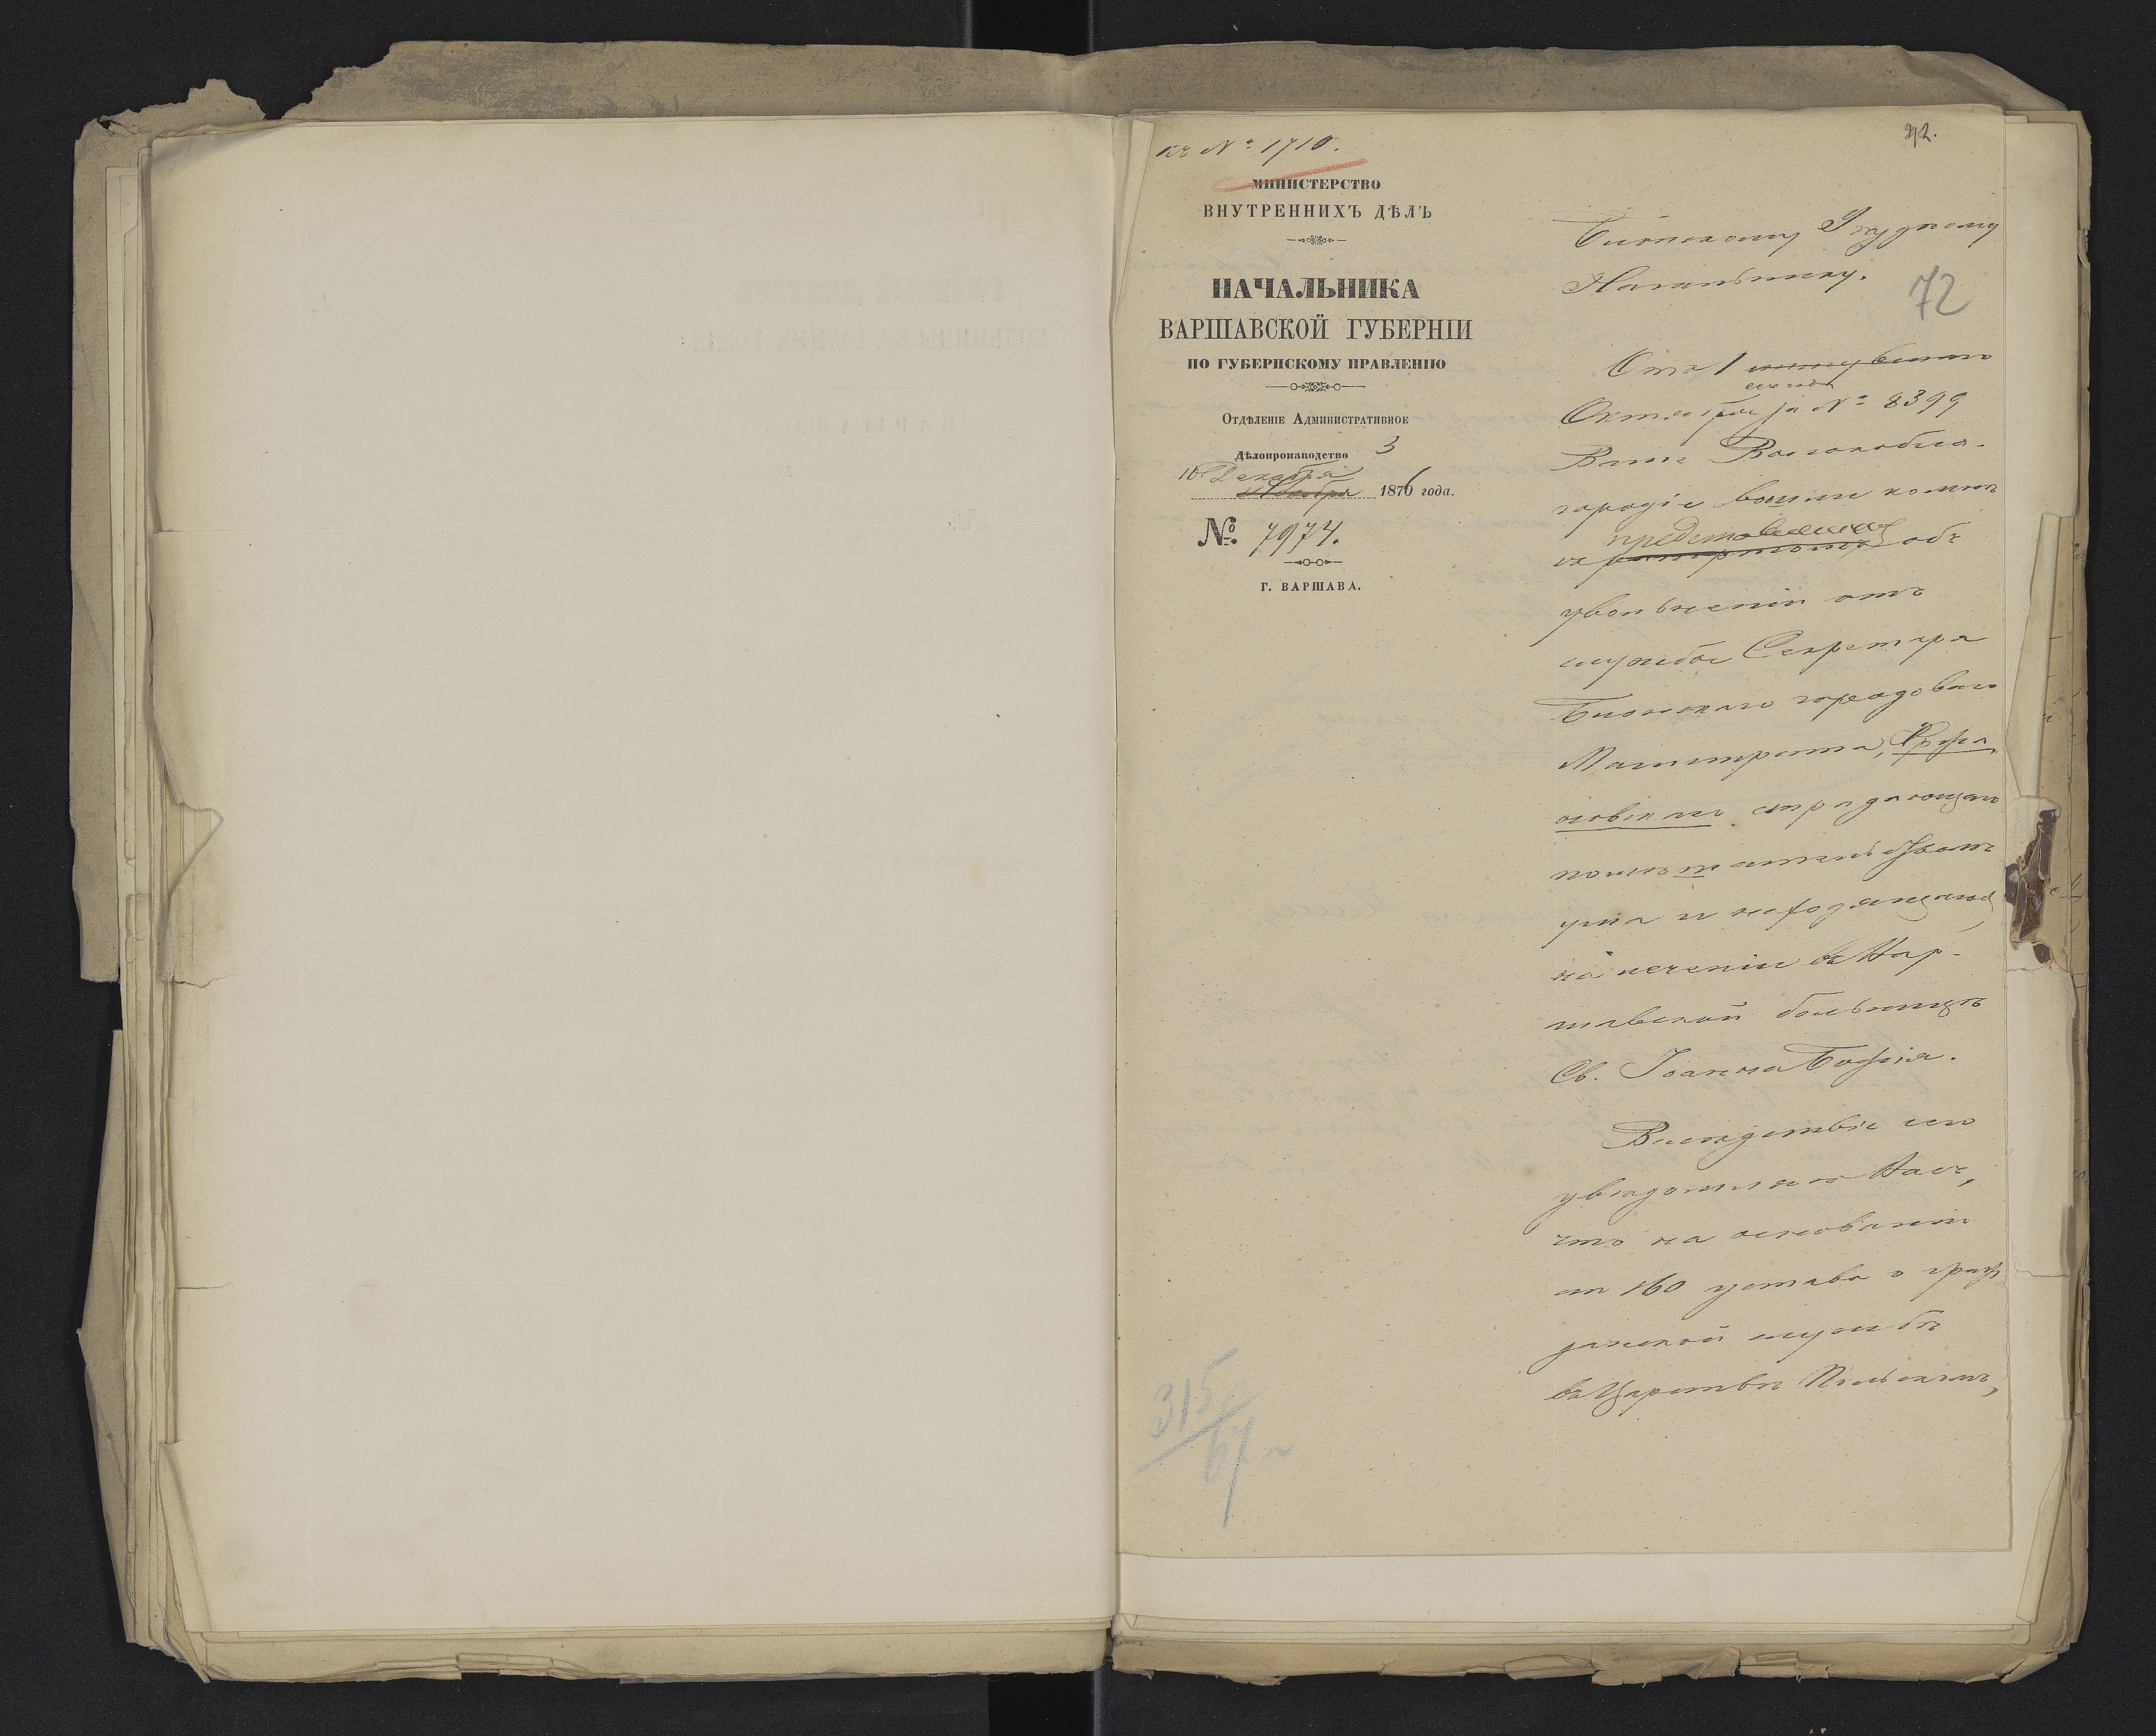 къ № 1710.
42.
МИНИСТЕРСТВО
ВНУТРЕННИХЪ ДѢЛЪ
НАЧАЛЬНИКА
ВАРШАВСКОЙ ГУБЕРНІИ
ПО ГУБЕРНСКОМУ ПРАВЛЕНІЮ
Отдѣленіе Административное
Дѣлопроизводство 3
10 Декабря
Ноября 1876 года.
№ 7974.
Г. ВАРШАВА.
315/67
Блонскому Уѣздному
Начальнику.
72
Отъ 1
сего года
Октября за № 8399
Ваше Высокобла-
городіе вошли ко мнѣ
представленіемъ
съ рапортомъ объ
увольненіи отъ
службы Секретаря
Блонскаго городоваго
Магистрата,
страдающаго
помѣшательствомъ
ума и находящагося
на леченіи въ Вар-
шавской больницѣ
Св. Іоанна Божія.
Вслѣдствіе сего
увѣдомляю Васъ,
что на основаніи
ст 160 устава о граж
данской службѣ
въ Царствѣ Польскомъ,